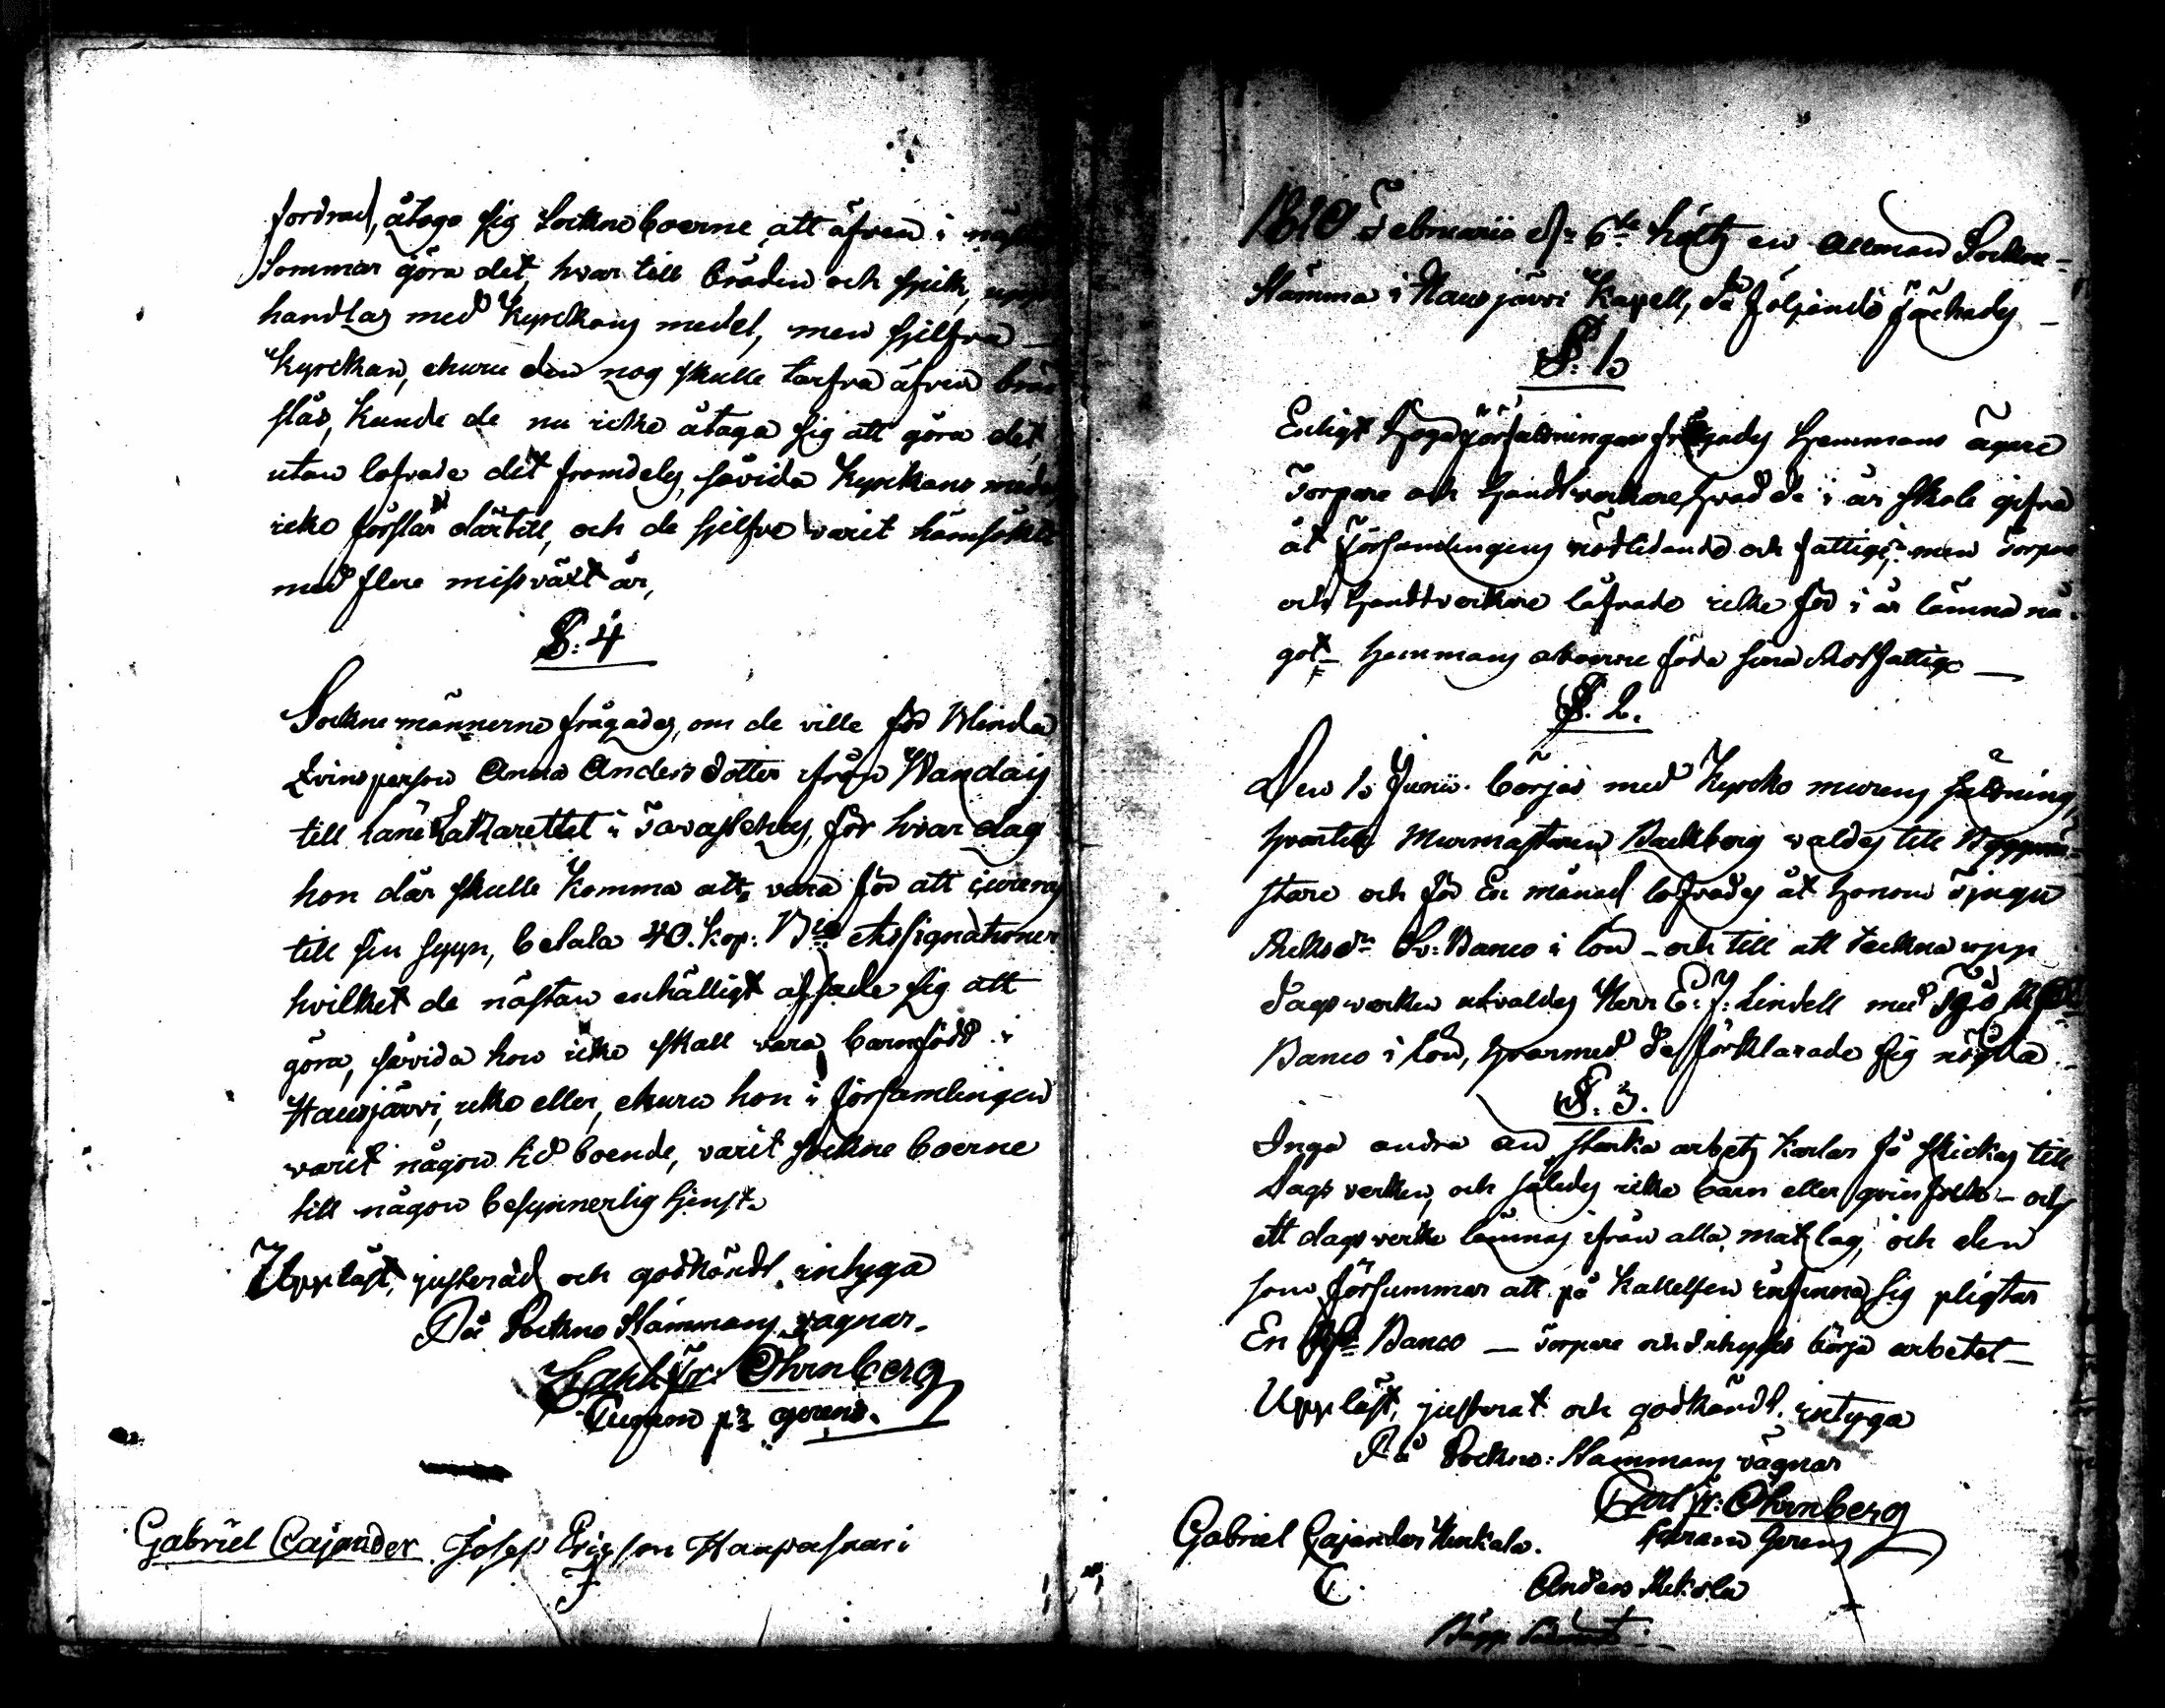 fordrad, åtogo sig Sockneboerne att äfven i
Sommar göra det, hvar till bräden och spik,
handlas med Kyrckans medel, men sjelfva
Kyrckan, ehuru den nog skulle tarfva äfven
slås, kunde de nu icke åtaga sig att göra det,
utan lofvade det framdeles, såvida Kyrckans
icke förslår därtill, och de sjelfve varit hemsökte
med flere missväxt år,
§: 4
Sockne männerne frågades, om de ville för Blinda
Qvinsperson Anna Anders dotter ifrån
till Lazarettet i Tavastehus, för hvar dag
hon där skulle komma att vara för att cureras
till sin syyn, betala 40. kop: Assignationer
hvilket de nästan enhälligt afsade sig att
göra, såvida hon icke skall vara barnfödd i
Hausjärvi, icke eller, ehuru hon i församlingen
varit någon tid boende, varit sockne boerne
till någon besynnerlig tjenst.
Uppläst, justerad och godkändt, intyga
På Sockne Stämmans vägnar.
Ohrnberg
Gabriel Cajander Josep Ericsson Haapasaari
1810 Februarii d: 6te hölts en Allmän Sockne-
Stämma i Hausjärvi Kapell, då följande förehades
§: 1.
Enligt Höga författningar frågades Hemmans ägare
Torpare och Handtverkare, hvad de i år skole gifva
åt Församlingens nödlidande och fattige; men Torpare
och Handtverkare lofvade icke för i år lämna nå-
got - Hemmans åboerne föda sina Rotfattige
§. 2.
Den 1. Junii börjas med Kyrcko murens
hvartill Murmästaren Backberg valdes till Byggmä-
stare och för En månad lofvades åt honom Tjugu
Banco i lön - och till att teckna upp
dagsverken utvaldes Herr E: J: Lindell med
Banco i lön, hvarmed de förklarade sig nögda.
§. 3.
Inga andra än starka arbets karlar få skickas till
dags verken, och således icke barn eller qvinfolk - och
ett dagsverke lämnas ifrån alla matlag, och den
som försummar att på kallelsen infinna sig pligtar
En Banco - Torpare och Inhyses börja arbetet -
Uppläst, justerat och godkändt, intyga
På Sockne: Stämmans vägnar
Carl Fr: Ohrnberg
Gabriel Cajander
Anders